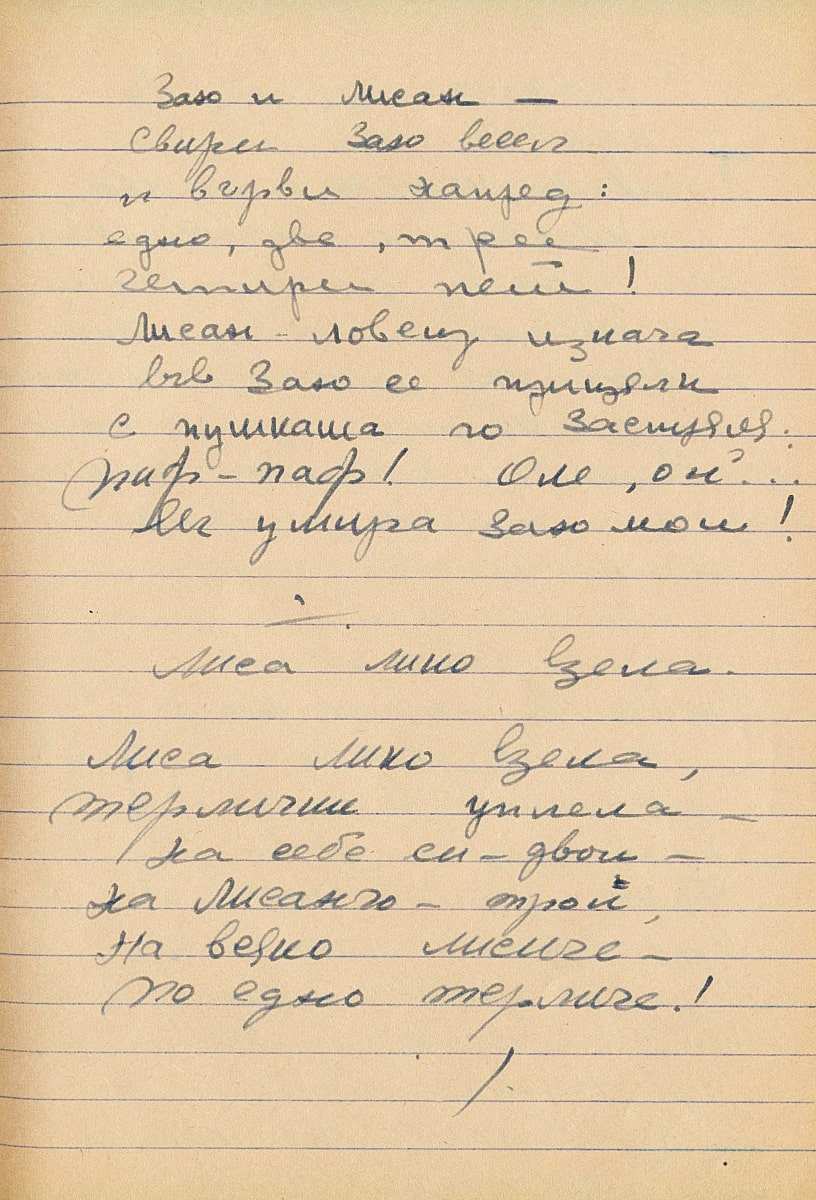 Заю и Лисан —
Свири Заю весел
и върви напред:
едно, две, трее
четири пет!
Лисан - ловец изкача
във Заю се прицели
с пушката го застреля:
пиф-паф! Оле, ой...
Ах умира Заю мой!
Лиса лико взела.
Лиса лико взела,
терлички уплела —
на себе си - двои —
на Лисанчо - трой,
На всяко лисиче —
по едно терличе!